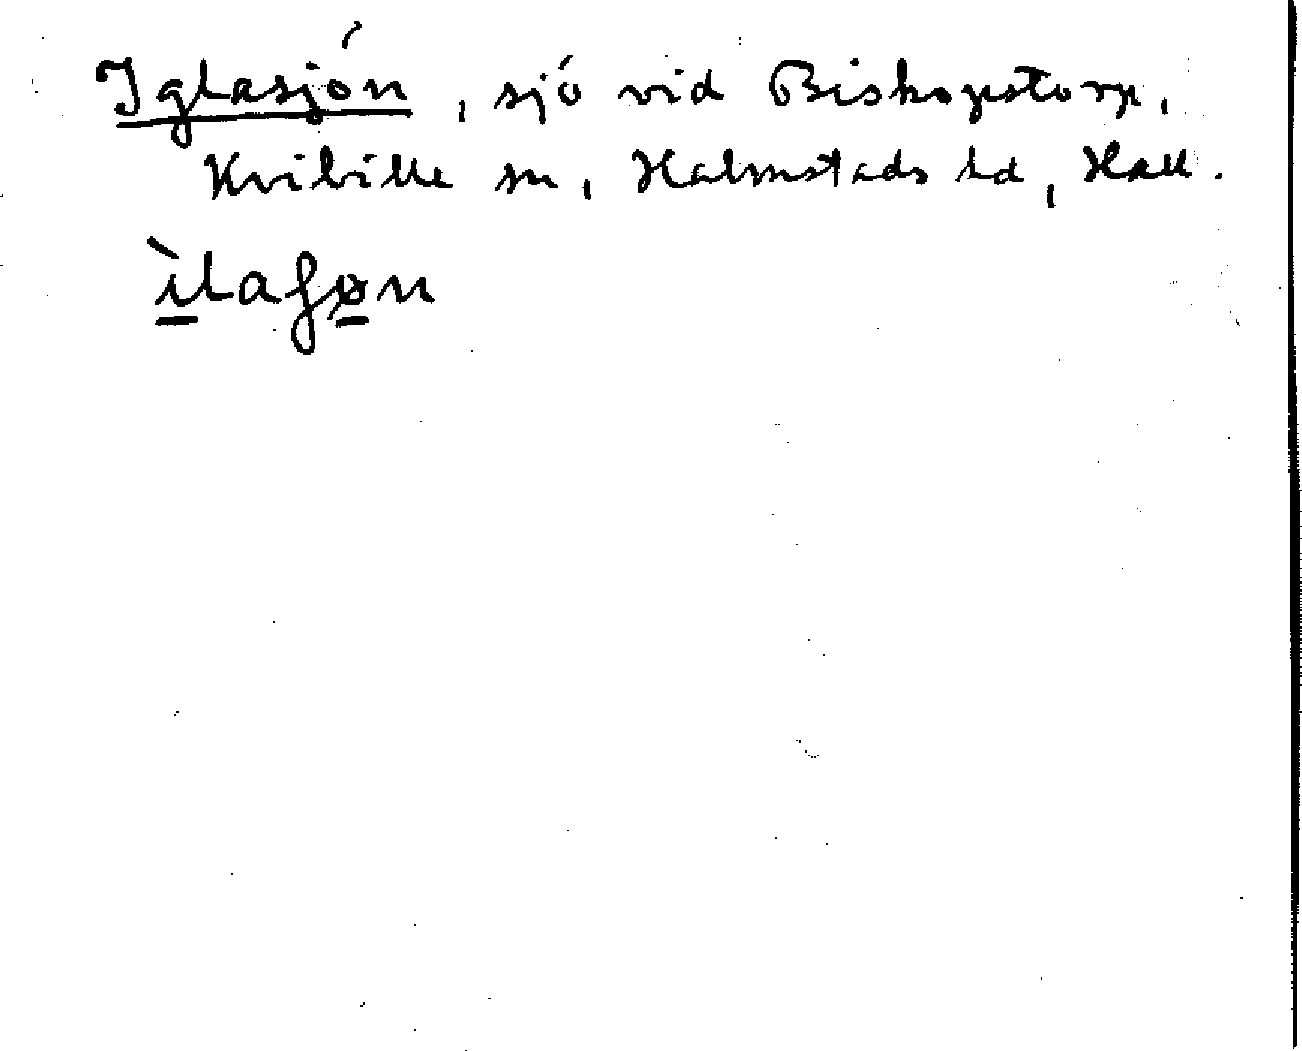 Iglasjön, sjö vid Bishopstorp,
Kvibille sn, Halmstads hd, Hall.
ı̱̀laʃø̱n